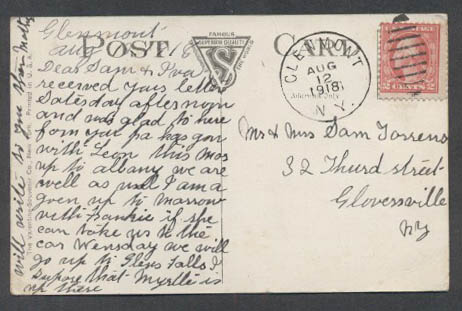 Glenmont
Aug
POST CARD
FAMOUS
SUPERIOR QUALITY
Dear Sam & Iva
received your letter
Satesday afternoon
and was glad to here
form you pa has gon
with Leon this Mos
up to albany we are
well as usel I am a
goen up to marrow
with Frankie if she
can take us to the
car Wensday we will
go up to Glens Falls I
supose that Myrtle is
up there
will write to you from Mother
Printed in U.S.A.
CLERMONT
AUG
12
1918
N.Y.
2 CENTS 2
Mr & Mrs Sam Torrens
32 Thurd street
Gloversville
NY